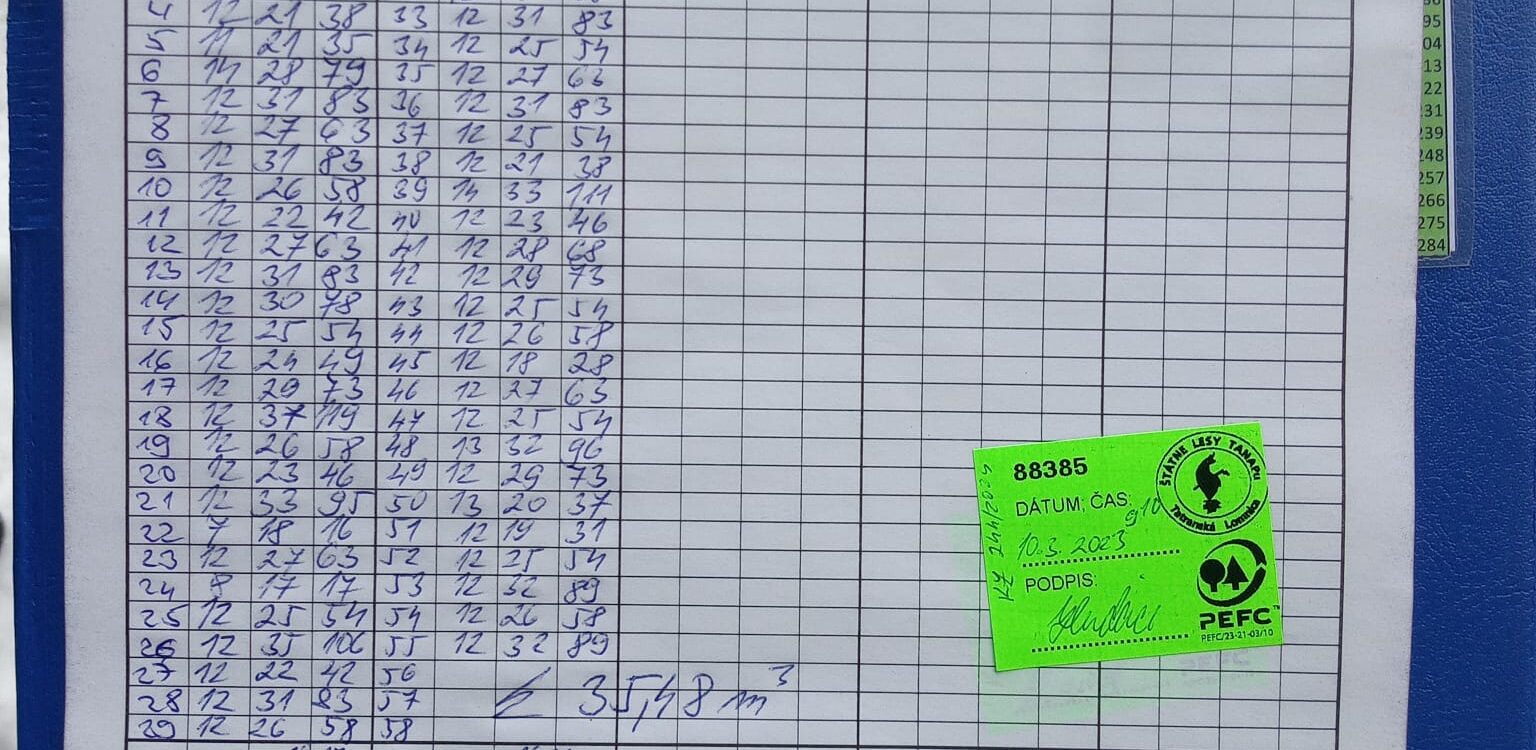 4 12 21 38 33 12 31 83
5 11 21 35 34 12 25 54
6 14 28 79 35 12 27 63
7 12 31 83 36 12 31 83
8 12 27 63 37 12 25 54
9 12 31 83 38 12 21 38
10 12 26 58 39 14 33 111
11 12 22 42 40 12 23 46
12 12 27 63 41 12 28 68
13 12 31 83 42 12 29 73
14 12 30 78 43 12 25 54
15 12 25 54 44 12 26 58
16 12 24 49 45 12 18 28
17 12 29 73 46 12 27 63
18 12 37 119 47 12 25 54
19 12 26 58 48 13 32 96
20 12 23 46 49 12 29 73
21 12 33 95 50 13 20 37
22 7 18 16 51 12 19 31
23 12 27 63 52 12 25 54
24 8 17 17 53 12 32 89
25 12 25 54 54 12 26 58
26 12 35 106 55 12 32 89
27 12 22 42 56
28 12 31 83 57
35,48 m³
29 12 26 58 58
88385
DÁTUM; ČAS:
9 10
10.3. 2023
PODPIS:
ŠTÁTNE LESY TANAPU
Tatranská Lomnica
PEFC™
PEFC/23-21-03/10
95
04
13
22
231
239
248
257
266
275
284